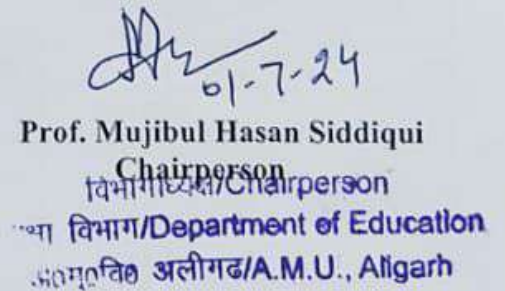 01-7-24
Prof. Mujibul Hasan Siddiqui
Chairperson
विभागाध्यक्ष/Chairperson
विभाग/Department of Education
अलीगढ/A.M.U., Aligarh